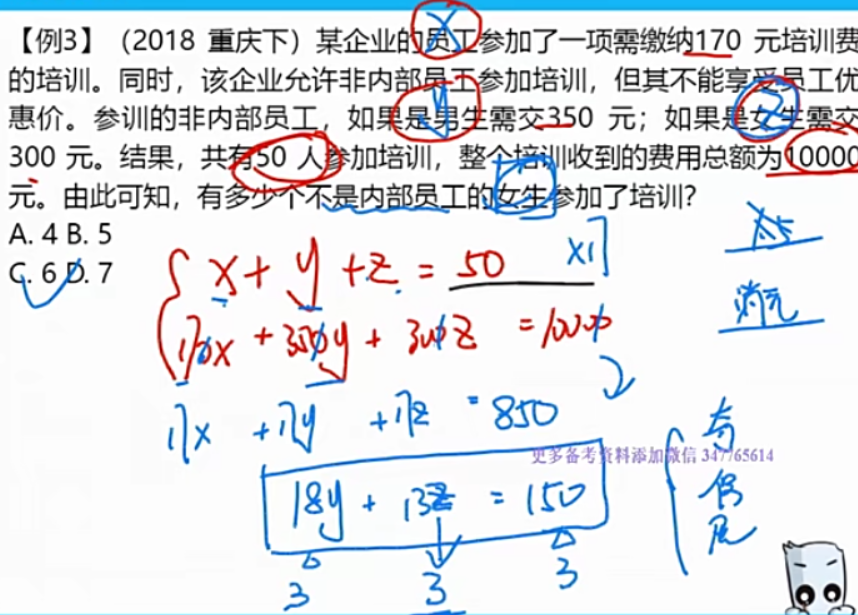 【例3】（2018 重庆下）某企业的员工参加了一项需缴纳170 元培训费
的培训。同时，该企业允许非内部员工参加培训，但其不能享受员工优
惠价。参训的非内部员工，如果是男生需交350 元；如果是女生需交
300 元。结果，共有50 人参加培训，整个培训收到的费用总额为10000
元。由此可知，有多少个不是内部员工的女生参加了培训？
A. 4 B. 5
C. 6 D. 7
x
y
z
x + y + z = 50 ×17
170x + 350y + 300z = 10000
消元
17x + 17y + 17z = 850
更多备考资料添加微信 347765614
18y + 13z = 150
3 3 3
奇
倍
尾